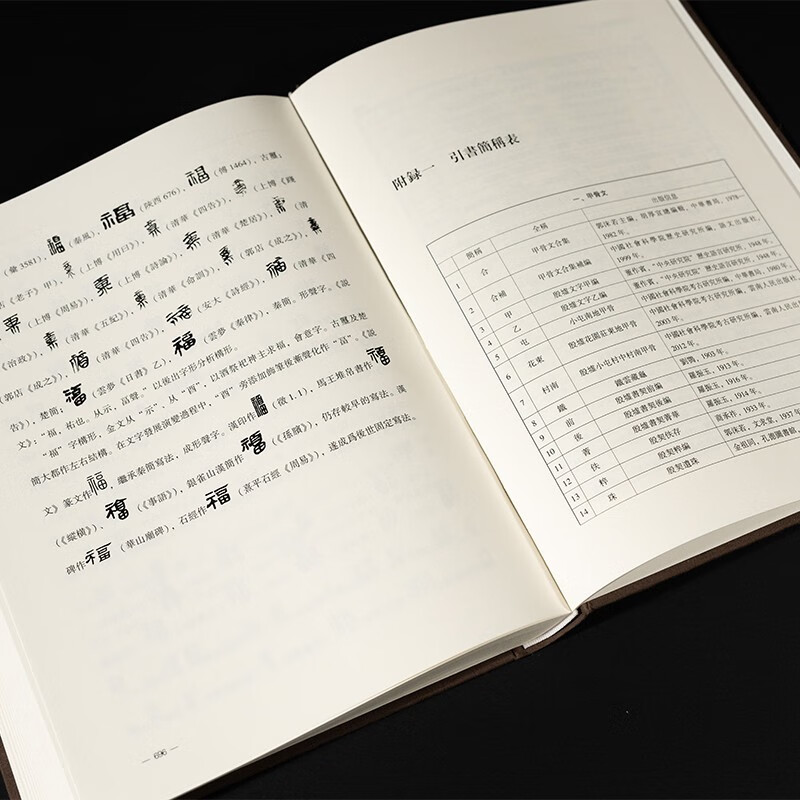 （彙 3581）， （秦風）， （陝西 676）， （傅 1464），古璽；
《老子》甲）， （上博《用曰》）， （清華《四告》）， （上博《踐
（上博《周易》）， （上博《詩論》）， （清華《楚居》）， （清
《治政》）， （清華《五紀》）， （清華《命訓》）， （郭店《成之》），
（郭店《成之》）， （清華《四告》）， （安大《詩經》）， （清華《四
告》），楚簡； （雲夢《日書》乙）， （雲夢《秦律》），秦簡。形聲字。《說
文》：“福，祐也。从示，畐聲。”以後出字形分析構形。
“福”字構形，金文从“示”，从“酉”，以酒祭祀神主求福，會意字。古璽及楚
簡大都作左右結構。在文字發展演變過程中，“酉”旁添加飾筆後漸聲化作“畐”。《說
文》篆文作福，繼承秦簡寫法，成形聲字。漢印作福（徵 1.1），馬王堆帛書作福
（《縱橫》）、福（《事語》），銀雀山漢簡作福（《孫臏》），仍存較早的寫法。漢
碑作福（華山廟碑），石經作福（熹平石經《周易》），遂成爲後世固定寫法。
— 696 —
附録一 引書簡稱表
一、甲骨文
簡稱 全稱 出版信息
1 合 甲骨文合集 郭沫若主編，胡厚宣總編輯，中華書局，1978—1982年。
2 合補 甲骨文合集補編 中國社會科學院歷史研究所編，語文出版社，1999年。
3 甲 殷墟文字甲編 董作賓，“中央研究院”歷史語言研究所，1948年。
4 乙 殷墟文字乙編 董作賓，“中央研究院”歷史語言研究所，1948年。
5 屯 小屯南地甲骨 中國社會科學院考古研究所編，中華書局，1980年。
6 花東 殷墟花園莊東地甲骨 中國社會科學院考古研究所編，雲南人民出版社，2003年。
7 村南 殷墟小屯村中村南甲骨 中國社會科學院考古研究所編，雲南人民出版社，2012年。
8 鐵 鐵雲藏龜 劉鶚，1903年。
9 前 殷墟書契前編 羅振玉，1913年。
10 後 殷墟書契後編 羅振玉，1916年。
11 菁 殷墟書契菁華 羅振玉，1914年。
12 佚 殷契佚存 商承祚，1933年。
13 粹 殷契粹編 郭沫若，文求堂，1937年
14 珠 殷契遺珠 金祖同，孔德圖書館